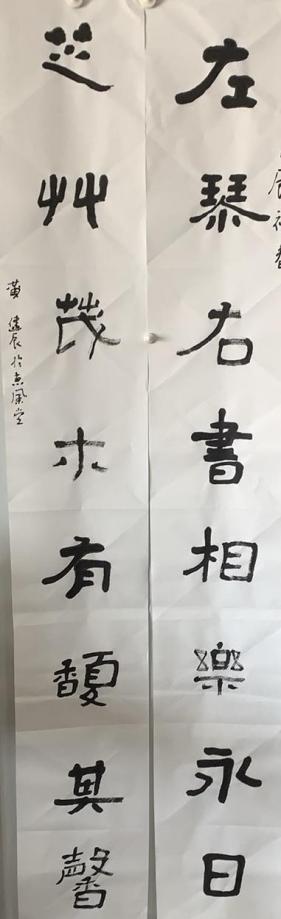 左琴右書相樂永日
芝艸茂木有馥其馨